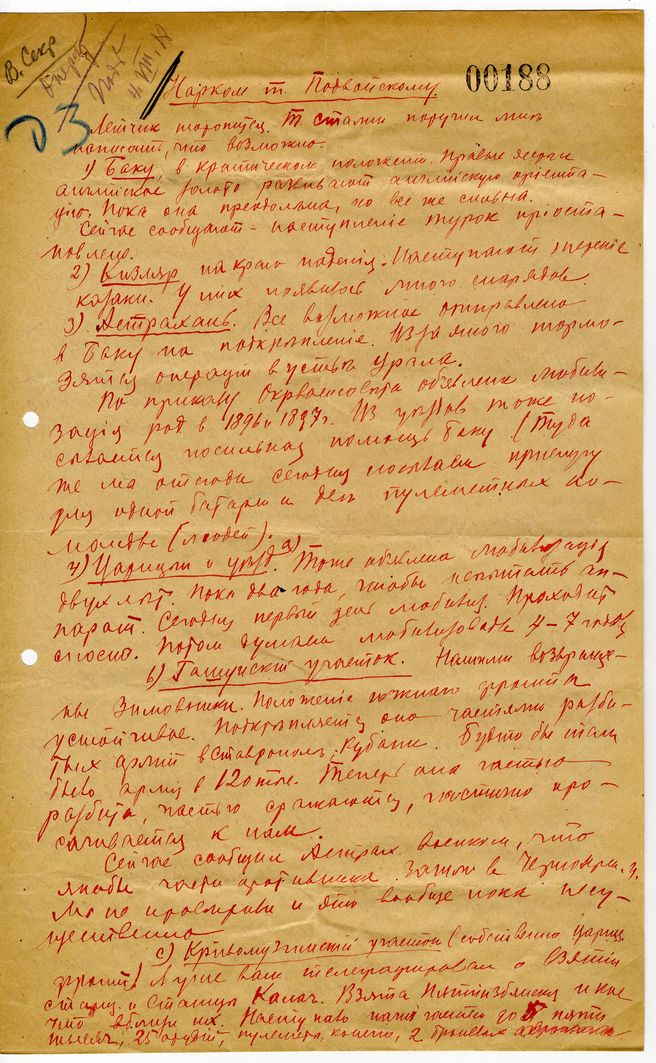 В. Секр
00188
Нарком т. Подвойскому.
Летчик торопится. Т. Сталин поручил мне
написать, что возможно.
1) Баку, в критическом положении. Правые эсеры
английское золото развивают английскую ориента-
цию. Пока она превольна, но все же сильна.
Сейчас сообщают - наступленіе турок пріоста-
новлено.
2) Кизляр на краю паденія. Наступают
казаки. У них появилось много снарядов.
3) Астрахань. Все возможное отправлено
в Баку на подкрѣпленіе. Из за много тормо-
зятся операціи в устьи Урала.
По приказу Окрвоенсовета объявлена мобили-
зація род в 1896 и 1897 г. Из тоже по-
сылается посильная помощь Баку (Туда
же мы отсюда сегодня послали прислугу
для одной батареи и для пулеметных ко-
манды (людей).
4) Царицын и уезд. а) Тоже объявлена мобилизація
двух лѣт. Пока два года, чтобы испытать ап-
парат. Сегодня первый день мобилиз. Проходит
сносно. Потом думаем мобилизовать 4-7 годов
b) Гашунскій участок. Нашими возвраще-
ны Зимовники. Положеніе южного фронта
устойчивое. Подкрѣпляется оно частями разби-
тых армій в Ставрополе, Кубани. Будто бы там
была армія в 120 тыс. Теперь она частью
разбита, частью сражается, частично про-
сачивается к нам.
Сейчас сообщил Астрах. военком, что
якобы части противника заняли Черноярск.
Мы не проверили и это вообще пока несу-
щественно
с) Кривомузгинскій участок (собственно цариц.
фронт) Лучше вам телеграфировал о взятіи
станц. и станицы Калач. Взята Пятиизбянская и кое
что вблизи них. Наступало до пяти
тысяч, 25 орудій, пулеметы, конечно, 2 броневых